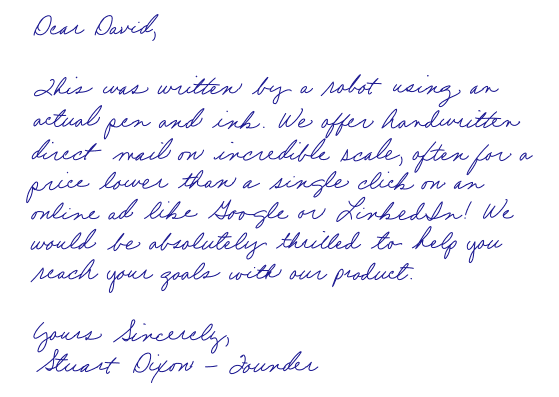 Dear David,
This was written by a robot using an
actual pen and ink. We offer handwritten
direct mail on incredible scale, often for a
price lower than a single click on an
online ad like Google or LinkedIn! We
would be absolutely thrilled to help you
reach your goals with our product.
Yours Sincerely,
Stuart Dixon - Founder